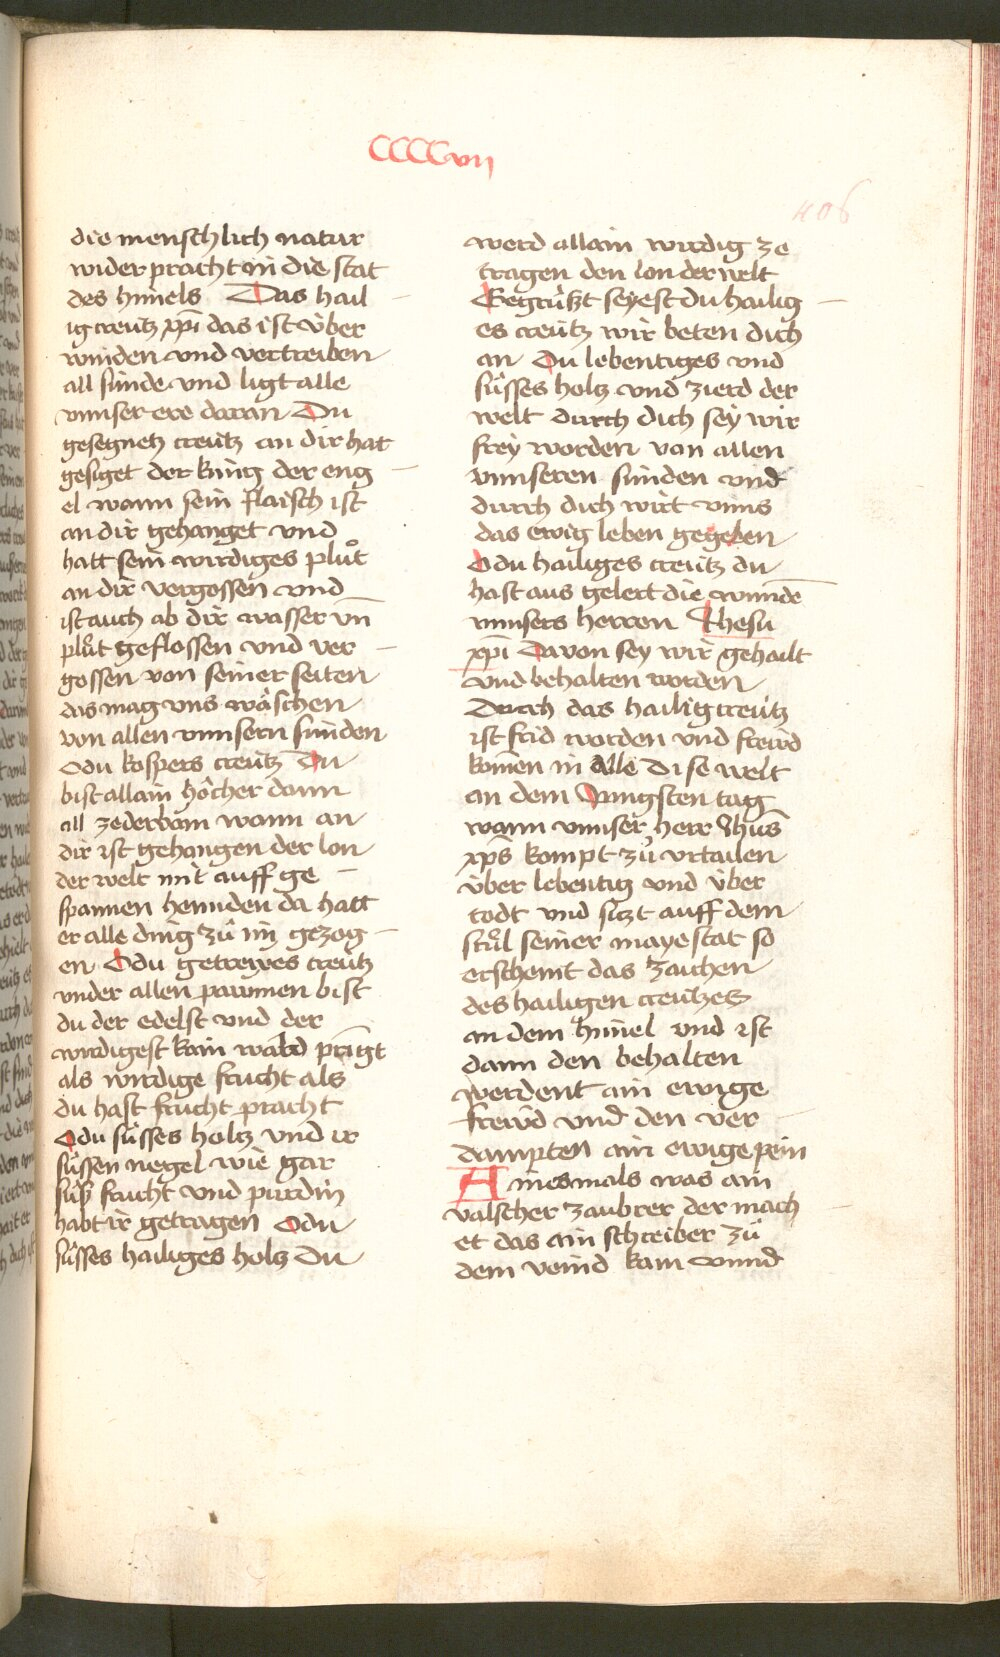 CCCCvii
406
die menschlich natur
wider pracht in die stat
des himels Das hail
ig creütz xp̄i das ist über
winden vnd vertreiben
all sünde vnd ligt alle
vnnser ere daran Du
gesegnetz creütz an dir hat
gesiget der küng der eng
el wann sein flaisch ist
an dir gehanget vnd
hatt sein wirdiges plůt
an dir vergossen vnd
ist auch ab dir wasser vn̄
plůt geflossen vnd ver
gossen von seiner seiten
das mag vns wäschen
von allen vnnsern sünden
O du kospers creütz Du
bist allain höcher dann
all zederbäm wann an
dir ist gehangen der lon
der welt mit auff ge
spannen hennden da hatt
er alle ding zů im gezog
en O du getrewes creütz
vnder allen pawmen bist
du der edelst vnd der
wirdigest kain wald pringt
als wirdige frucht als
du hast frucht pracht
O du süsses holtz vnd ir
süssen negel wie gar
süß frucht vnd pürdin
habt ir getragen O du
süsses hailiges holtz Du
werd allain wirdig ze
tragen den lon der welt
Gegrüßt seyest du hailig
es creütz wir beten dich
an Du lebentiges vnd
süsses holtz vnd zierd der
welt durch dich sey wir
frey worden von allen
vnnseren sünden vnd
durch dich wirt vnns
das ewig leben gegeben
O du hailiges creütz du
hast aus gelert die wundē
vnnsers herren Jhesu
xp̄i Davon sey wir gehailt
vnd behalten worden
Durch das hailig creütz
ist frid worden vnd frewd
komen in alle dise welt
an dem Jungsten tag
wann vnnser herr Jhus̄
xp̄s kompt zů vrtailen
über lebentig vnd über
todt vnd sitzt auff dem
stůl seiner mayestat so
erscheint das zaichen
des hailigen creützes
an dem himel vnd ist
dann den behalten
werdent ain ewige
frewd vnd den ver
dampten ain ewige pein
Ainesmals was ain
valscher zaubrer der mach
et das ain schreiber zů
dem veind kam vnnd